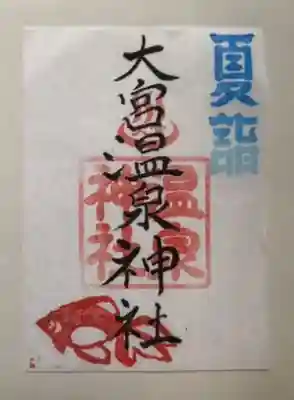 夏詣
大宮温泉神社
温泉
神社